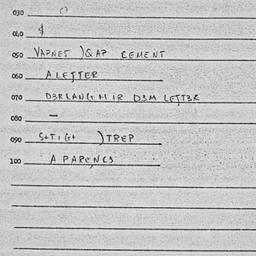 030 O
040
050 VAPNET )&AP CEMENT
060 A LETTER
070 D3RLANGT MIR D3M LETT3R
080 —
090 )TREP
100 A PARENCS